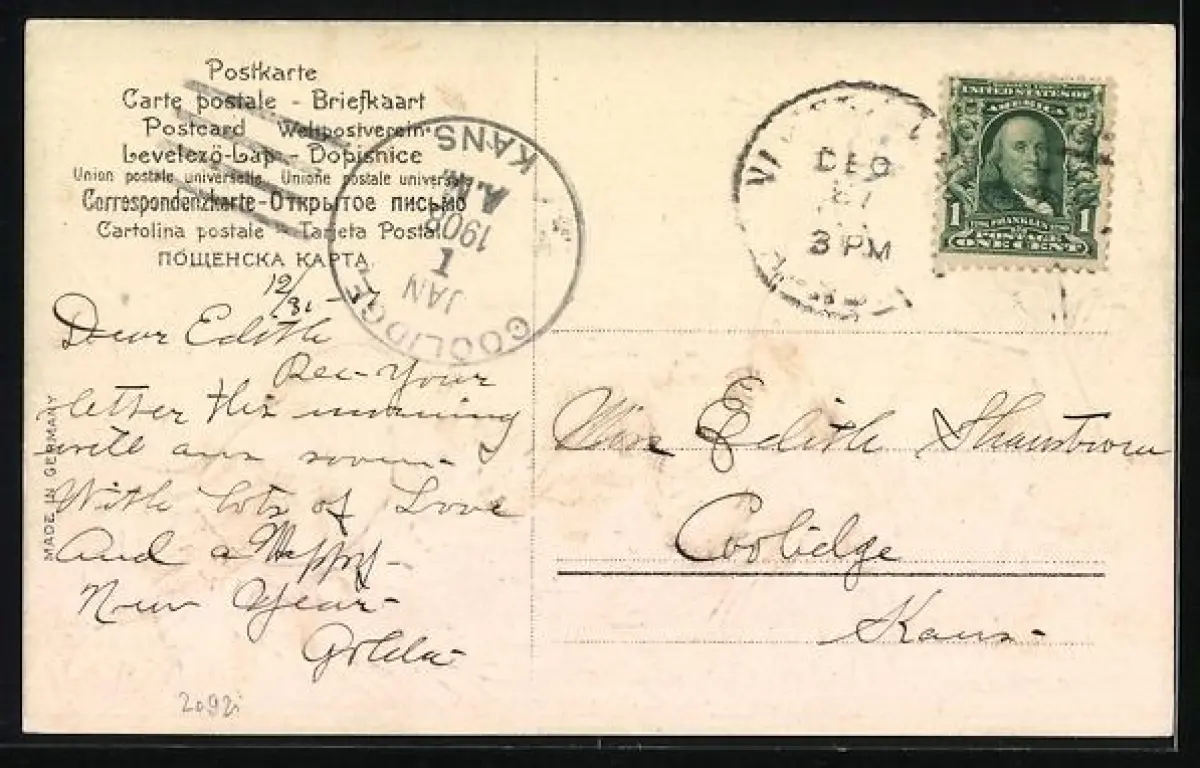 Postkarte
Carte postale - Briefkaart
Postcard Weltpostverein
Levelező-Lap - Dopisnice
Union postale universelle. Unione postale universale
Correspondenzkarte-Открытое письмо
Cartolina postale - Tarjeta Postal
ПОЩЕНСКА КАРТА
COOLIDGE, KANS
JAN
1
1908
A.M.
DEC
31
3 PM
UNITED STATES OF
AMERICA
1 FRANKLIN 1
POSTAGE
ONE CENT
12/31-7
Dear Edith
Rec - Your
letter this morning
will ans soon-
With lots of Love
And a Happy-
New Year-
Golda-
MADE IN GERMANY
Miss Edith
Coolidge
Kans-
2092i